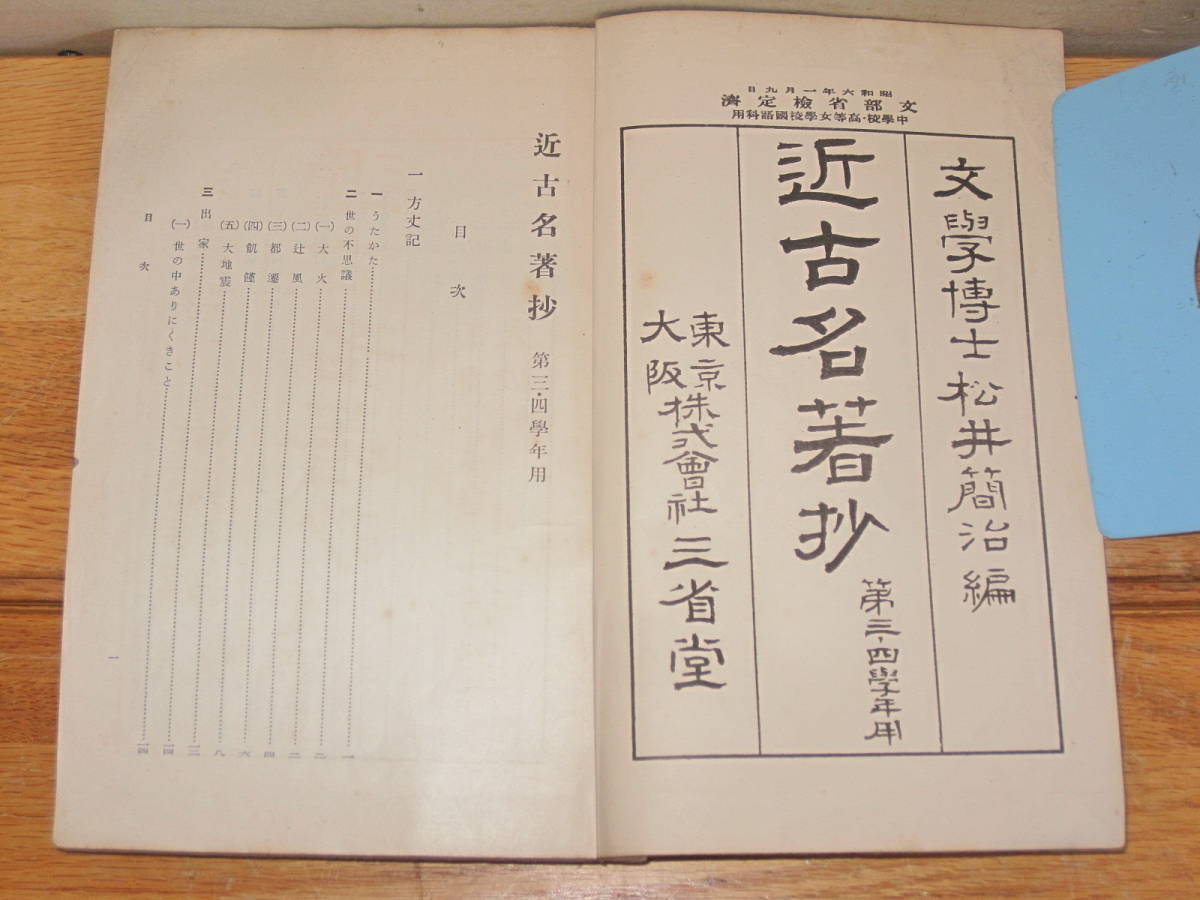 昭和六年一月九日
文部省檢定濟
中學校・高等女學校國語科用
文學博士松井簡治編
近古名著抄
第三・四學年用
東京
大阪
株式會社三省堂
近古名著抄 第三・四學年用
目次
一 方丈記
一 うたかた……一
二 世の不思議
(一) 大火……二
(二) 辻風……三
(三) 都遷……四
(四) 飢饉……六
(五) 大地震……八
三 出家……一三
(一) 世の中ありにくきこと……一四
目次
一